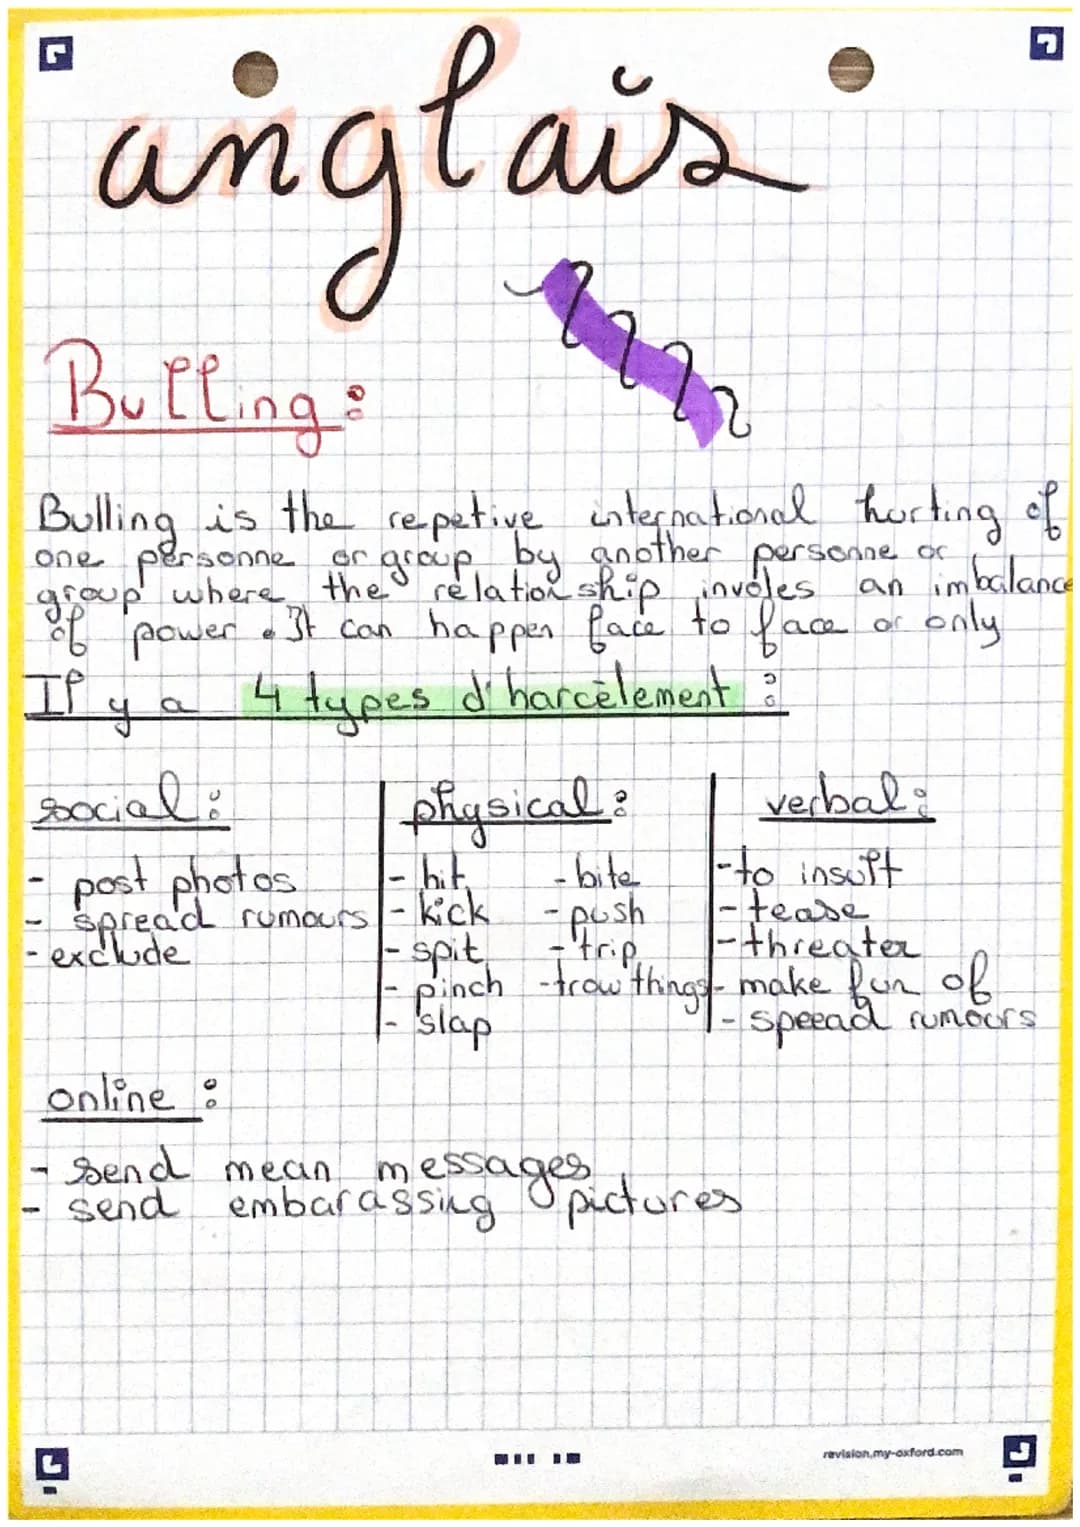 anglais
Bulling :
Bulling is the repetive international hurting of
one personne or group by another personne or
group where the relation ship involes an imbalance
of power. It can happen face to face or only
Il y a 4 types d'harcèlement :
social :
- post photos
- spread rumours
- exclude
physical :
- hit - bite
- kick - push
- spit - trip
- pinch - trow things
- slap
verbal :
- to insult
- tease
- threater
- make fun of
- speead rumours
online :
- send mean messages
- send embarassing pictures
revision.my-oxford.com